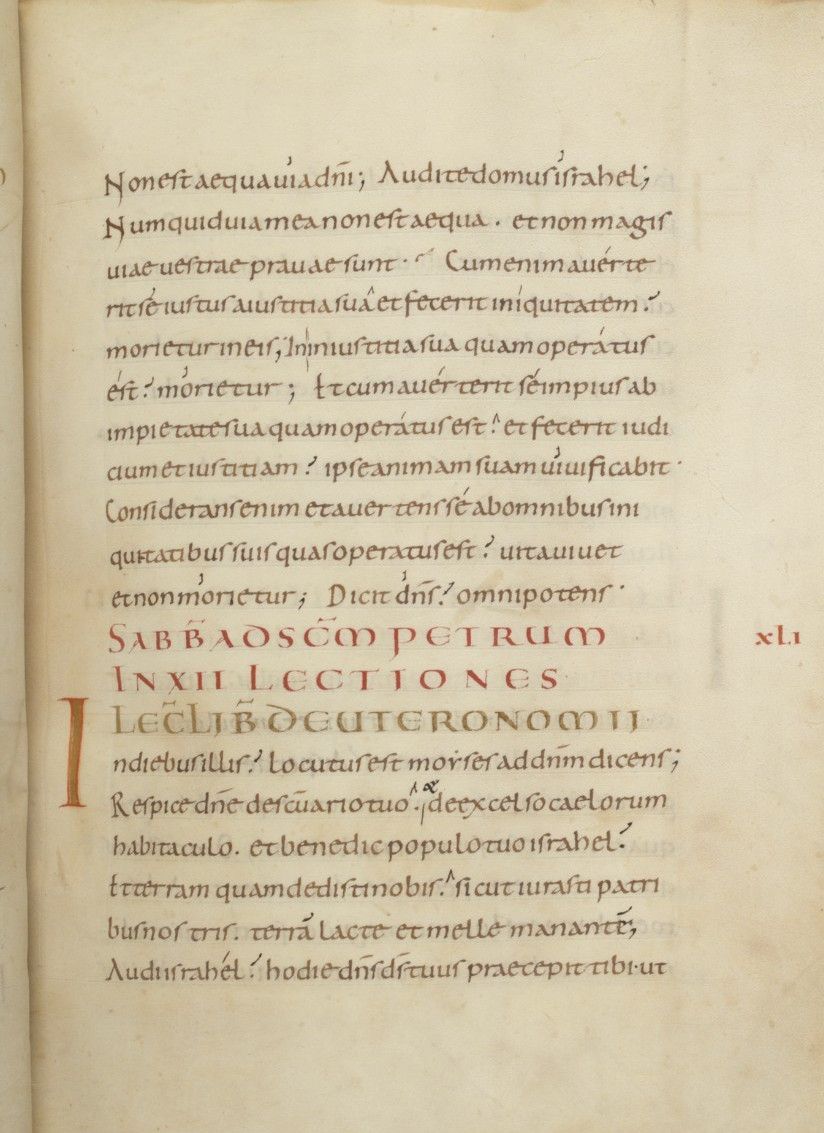 Non est aequa uia dñi; Audite domus israhel;
Numquid uia mea non est aequa. et non magis
uiae uestrae prauae sunt. Cum enim auerte
rit sé iustus a iustitia sua et fecerit iniquitatem?
morietur in eis; In iniustitia sua quam operátus
ést? morietur; Et cum auérterit sé impius ab
impietate sua quam operátus est? et fecerit iudi
cium et iustitiam? ipse animam suam uiuificabit.
Considerans enim et auertens sé ab omnibus ini
quitatibus suis quas operatus est? uita uiuet
et non morietur; Dicit dñs? omnipotens.
SABB̃ AD SC̃M PETRUM
IN XII LECTIONES
XLI
LEC̃ LIB̃ DEUTERONOMII
In diebus illis? Locutus est moyses ad dñm dicens;
Respice dñe de sc̃uario tuo. & de excelso caelorum
habitaculo. et benedic populo tuo israhel?
Et terram quam dedisti nobis. sicut iurasti patri
bus nostris. terrã lacte et melle manantẽ;
Audi israhél? hodie dñs d̃s tuus praecepit tibi. ut